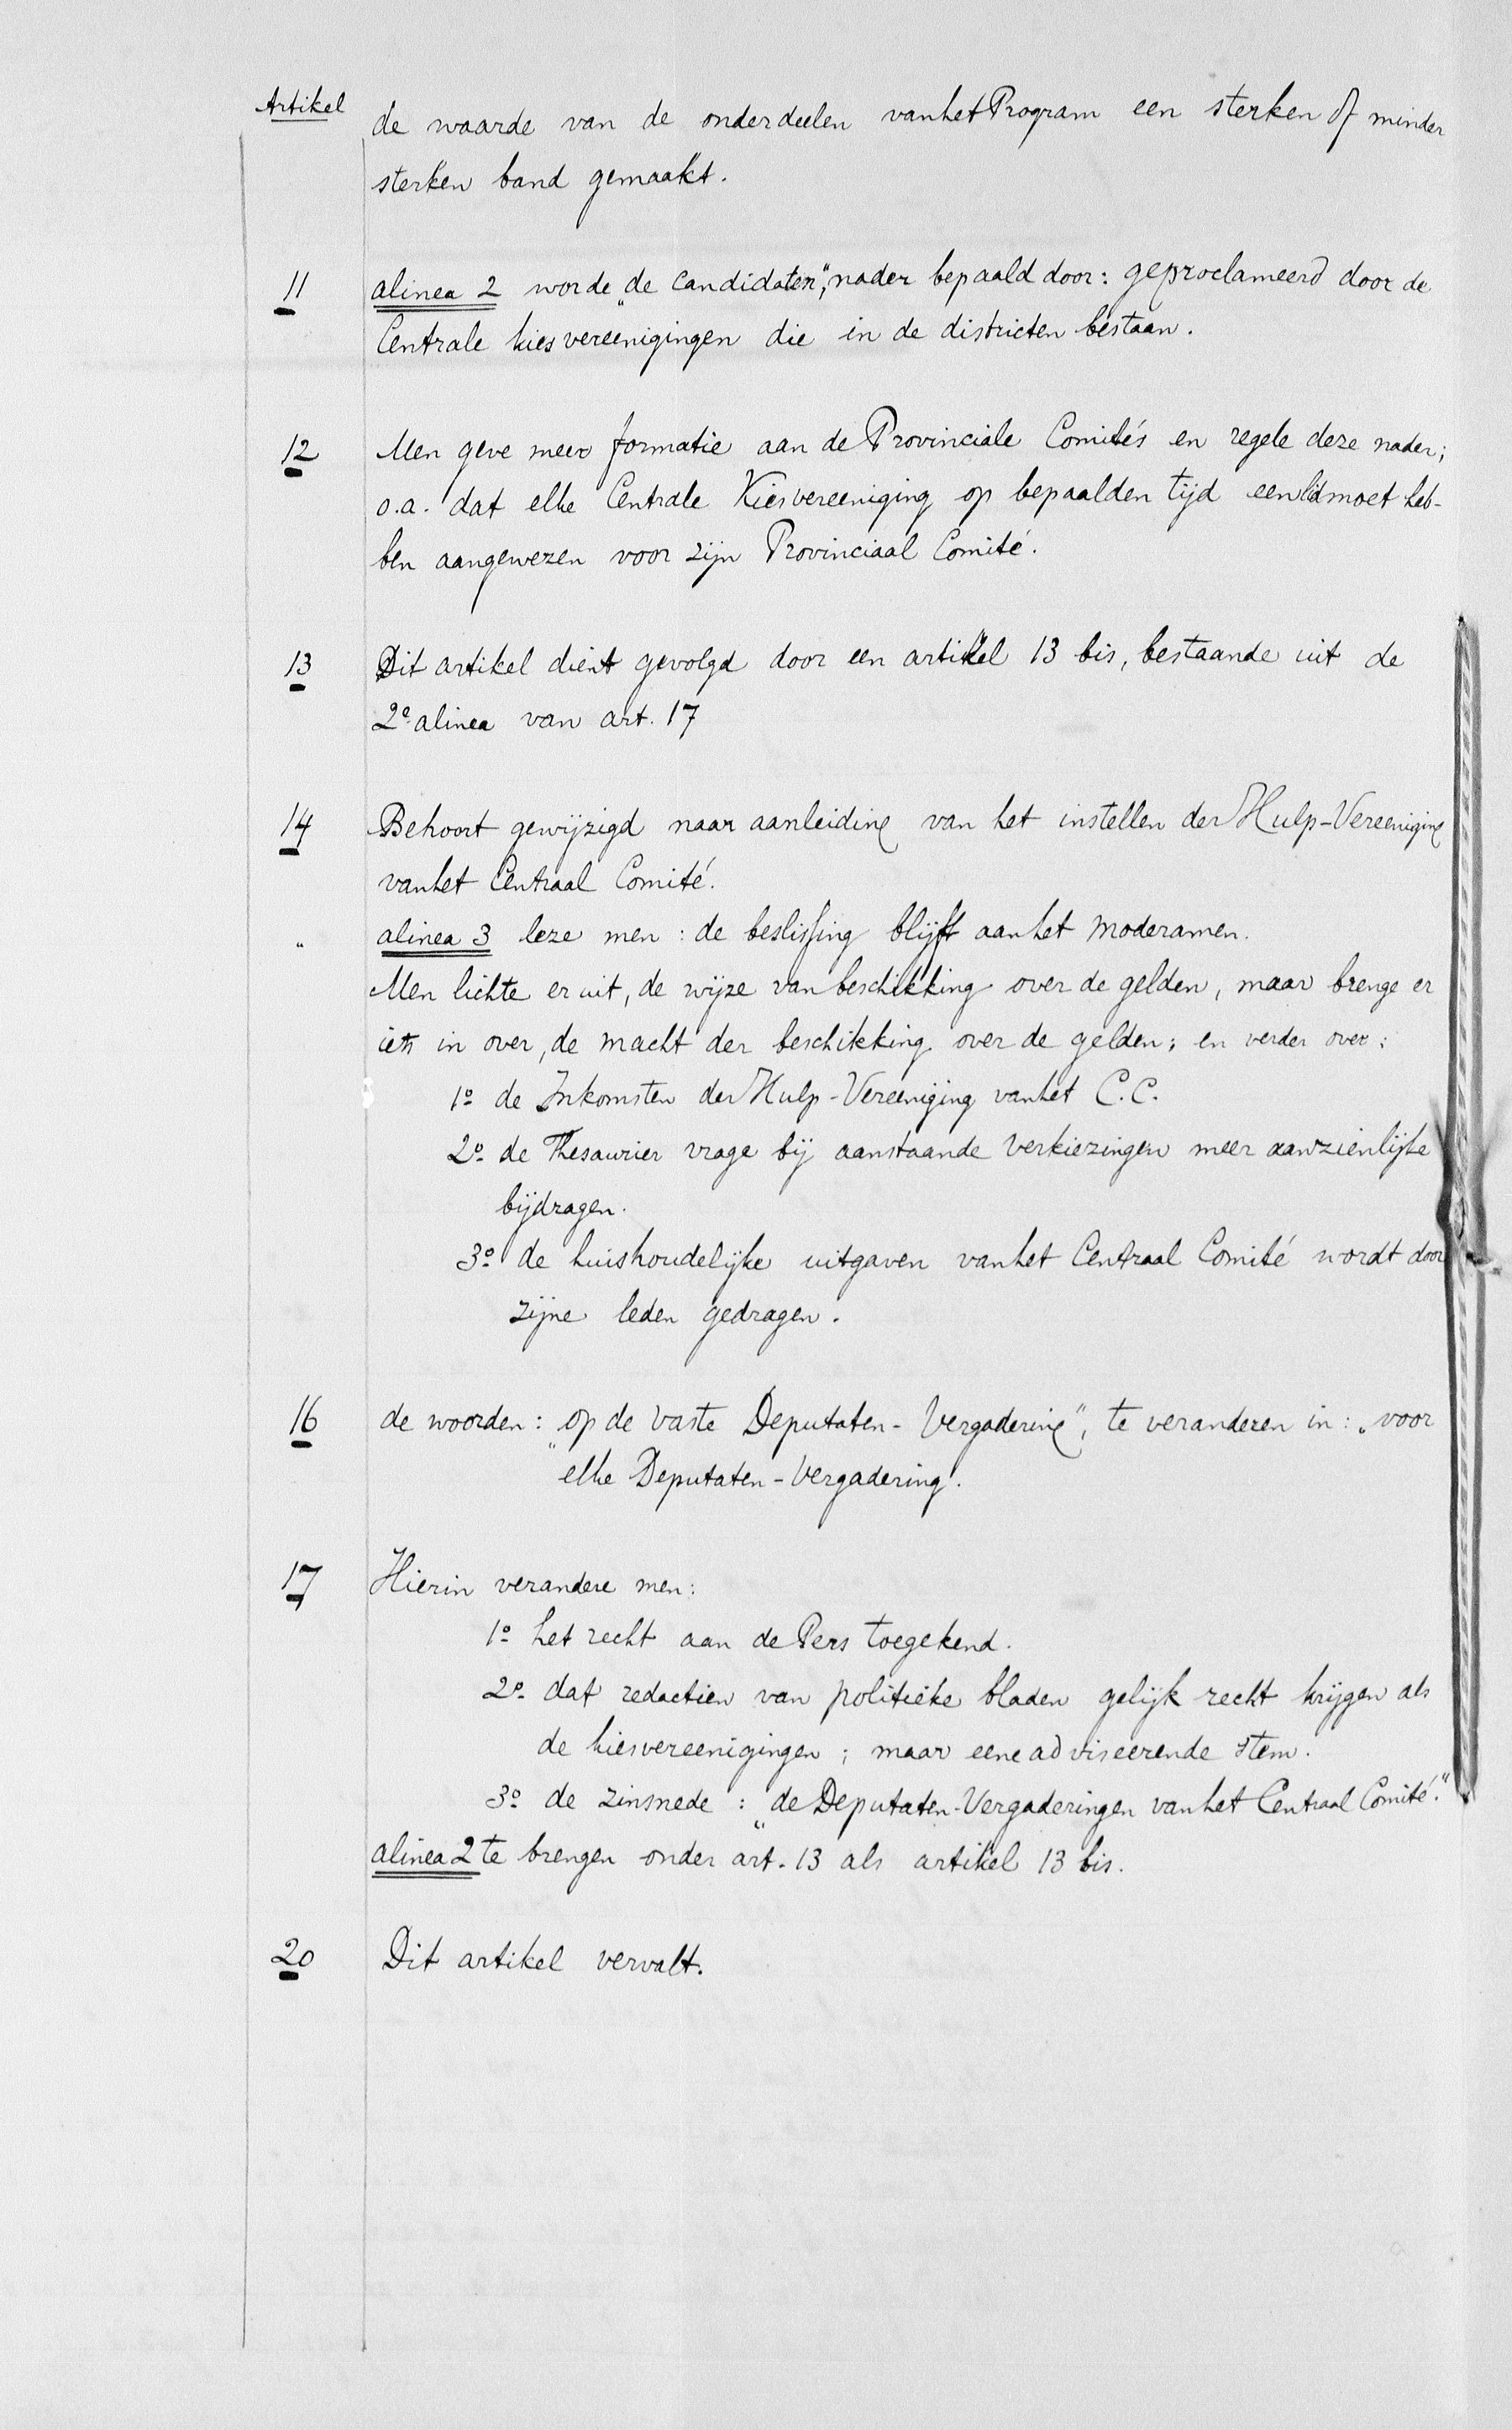 Artikel
de waarde van de onderdeelen van het Program een sterken of minder
sterken band gemaakt.
11 alinea 2 worde „de Candidaten”, nader bepaald door: geproclameerd door de
Centrale kiesvereenigingen die in de districten bestaan.
12 Men geve meer formatie aan de Provinciale Comités en regele deze nader;
o.a. dat elke Centrale Kiesvereeniging op bepaalden tijd een lid moet heb-
ben aangewezen voor zijn Provinciaal Comité.
13 Dit artikel dient gevolgd door een artikel 13 bis, bestaande uit de
2e alinea van art. 17
14 Behoort gewijzigd naar aanleiding van het instellen der Hulp-Vereeniging
van het Centraal Comité.
" alinea 3 leze men: de beslissing blijft aan het Moderamen.
Men lichte er uit, de wijze van beschikking over de gelden, maar brenge er
iets in over, de macht der beschikking over de gelden; en verder over:
1o de Inkomsten der Hulp-Vereeniging van het C.C.
2o de Thesaurier vrage bij aanstaande verkiezingen meer aanzienlijke
bijdragen.
3o de huishoudelijke uitgaven van het Centraal Comité wordt door
zijne leden gedragen.
16 de woorden: „op de vaste Deputaten-Vergadering”, te veranderen in: „voor
elke Deputaten-Vergadering.
17 Hierin verandere men:
1o het recht aan de Pers toegekend.
2o dat redactien van politieke bladen gelijk recht krijgen als
de kiesvereenigingen; maar eene adviseerende stem.
3o de zinsnede: „de Deputaten-Vergaderingen van het Centraal Comité.”
alinea 2 te brengen onder art. 13 als artikel 13 bis.
20 Dit artikel vervalt.